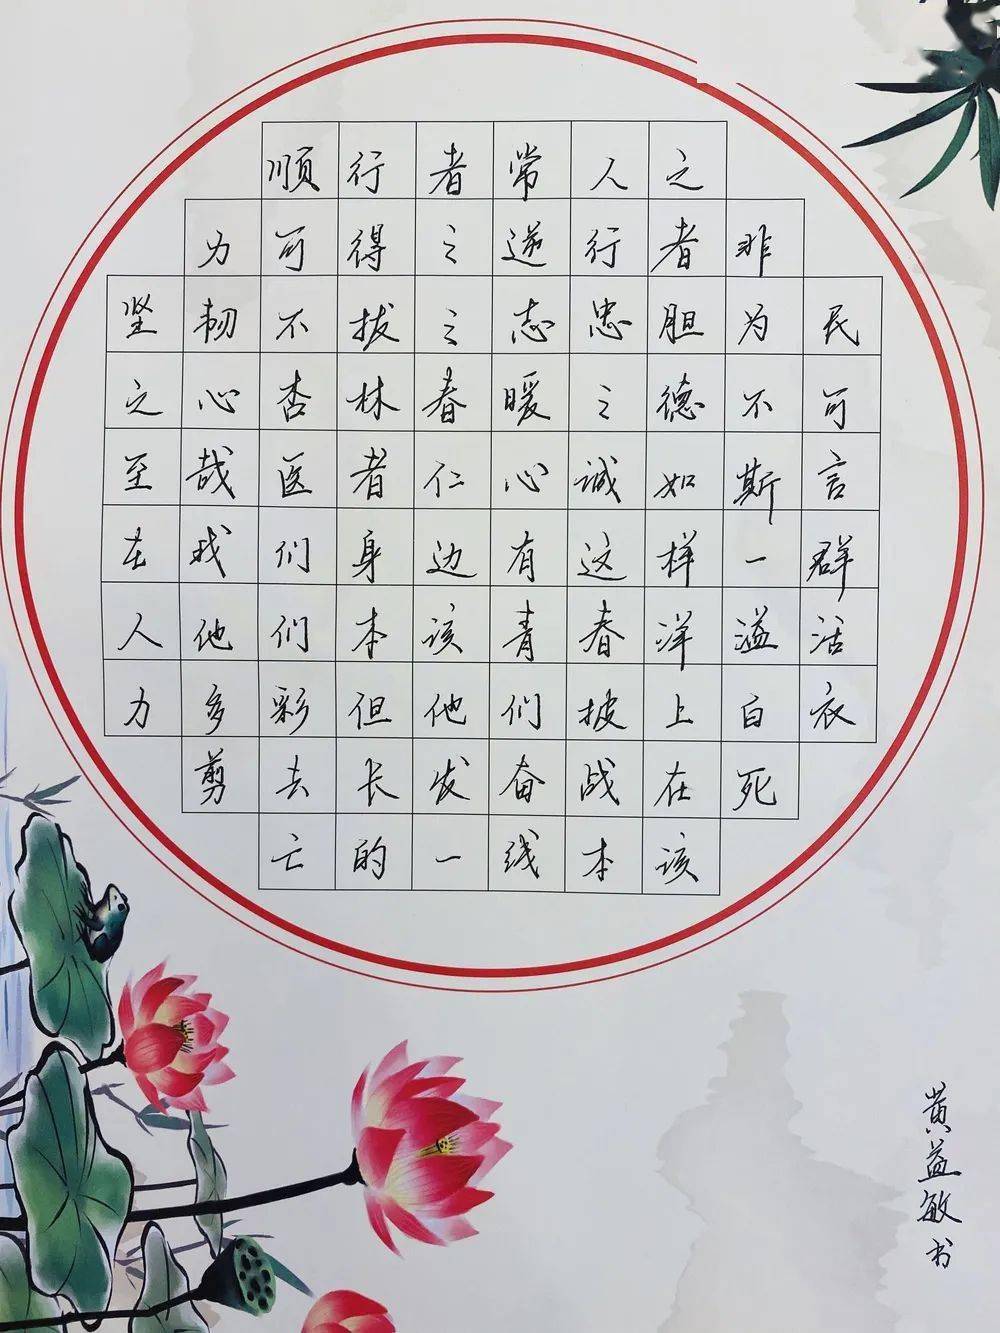 顺行者常人之
力可得之逆行者非
坚韧不拔之志忠胆为民
之心杏林春暖之德不可
至哉医者仁心诚如斯言
在我们身边有这样一群
人他们本该青春洋溢活
力多彩但他们披上白衣
剪去长发奋战在死
亡的一线本该
黄益敏书